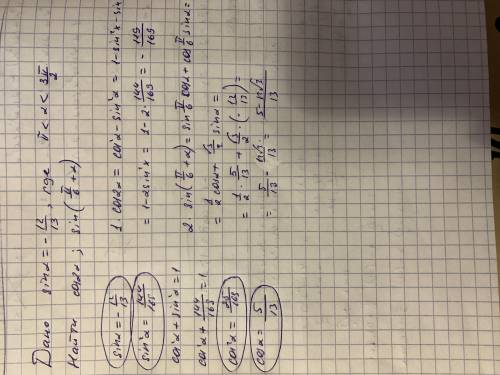 Дано sinα = -12/13; где π < α < 3π/2
Найти cos2α; sin(π/6 + α)
sinα = -12/13
sin²α = 144/169
cos²α + sin²α = 1
cos²α + 144/169 = 1
cos²α = 25/169
cosα = 5/13
1. cos2α = cos²α - sin²α = 1 - sin²α - sin
= 1 - 2sin²α = 1 - 2 · 144/169 = - 119/169
2. sin(π/6 + α) = sin π/6 cosα + cos π/6 sinα =
= 1/2 cosα + √3/2 sinα =
= 1/2 · 5/13 + √3/2 · (- 12/13) =